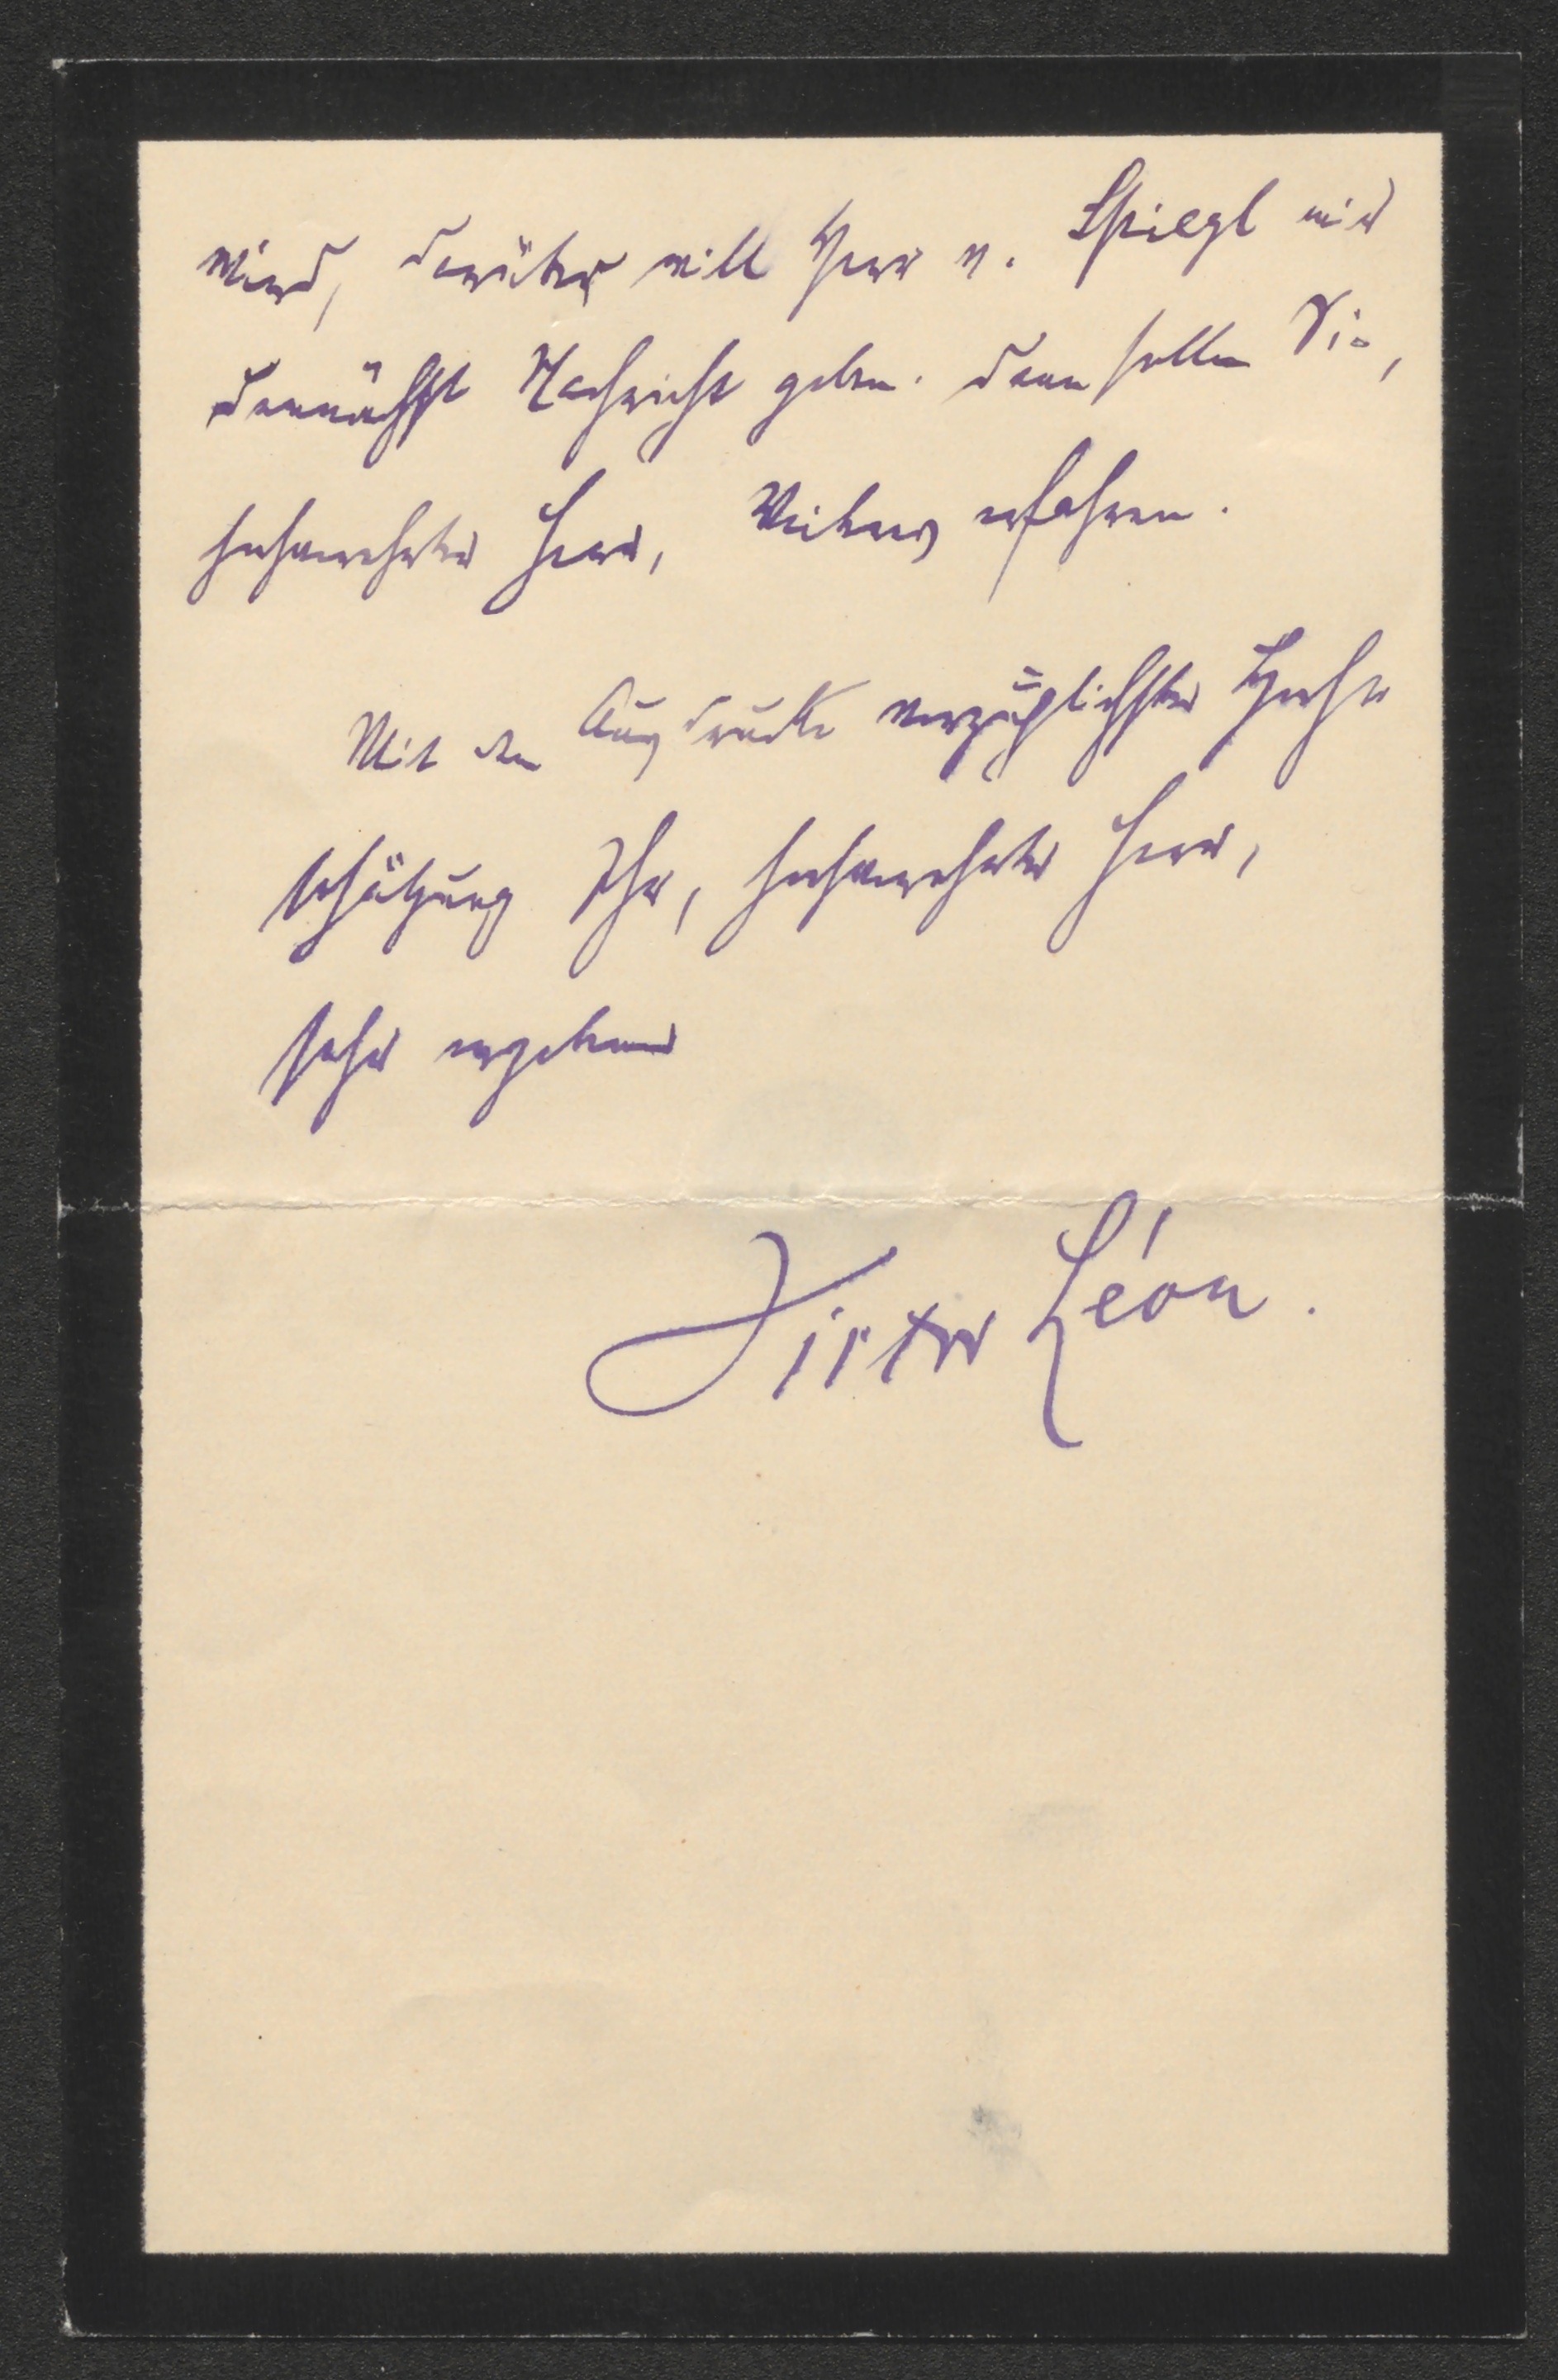 wird, darüber will Herr v. Spiegl mir
demnächst Nachricht geben. Dann sollen Sie,
hochverehrter Herr, Weiteres erfahren.
Mit dem Ausdrucke vorzüglichster Hoch
schätzung Ihr, hochverehrter Herr,
sehr ergebener
Victor Léon.